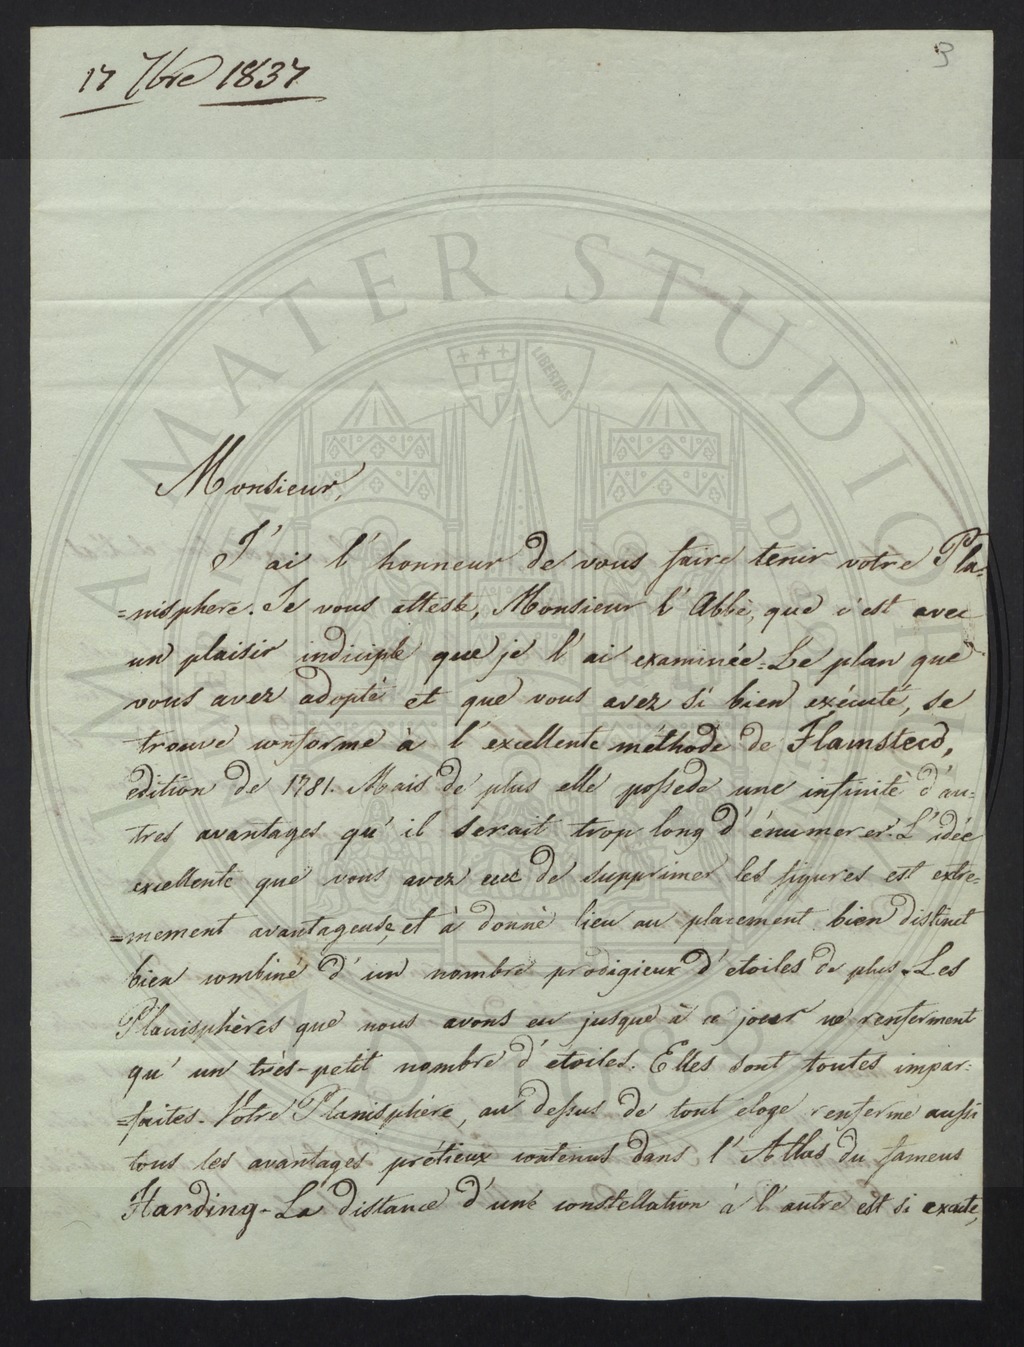 17 7bre 1837
3
Monsieur,
J'ai l'honneur de vous faire tenir votre Pla-
=nisphere. Je vous atteste, Monsieur l'Abbè, que c'est avec
un plaisir indicible que je l'ai examinée. Le plan que
vous avez adopté et que vous avez si bien exécuté, se
trouve conforme à l'excellente méthode de Flamsteed,
edition de 1781. Mais de plus elle possede une infinitè d'au=
tres avantages qu'il serait trop long d'énumerer. L'idée
excellente que vous avez eue de supprimer les figures est extre=
=mement avantageuse, et à donnè lieu au placement bien distinct
bien combiné d'un nombre prodigieux d'etoiles de plus. Les
Planisphères que nous avons eu jusque à ce jour ne renferment
qu'un très-petit nombre d'etoiles. Elles sont toutes impar=
=faites. Votre Planisphère, au dessus de tout eloge renferme aussi
tous les avantages prétieux contenus dans l'Atlas du fameux
Harding. La distance d'une constellation à l'autre est si exacte,
ALMA MATER STUDIORUM
LIBERTAS
A.D. 1088